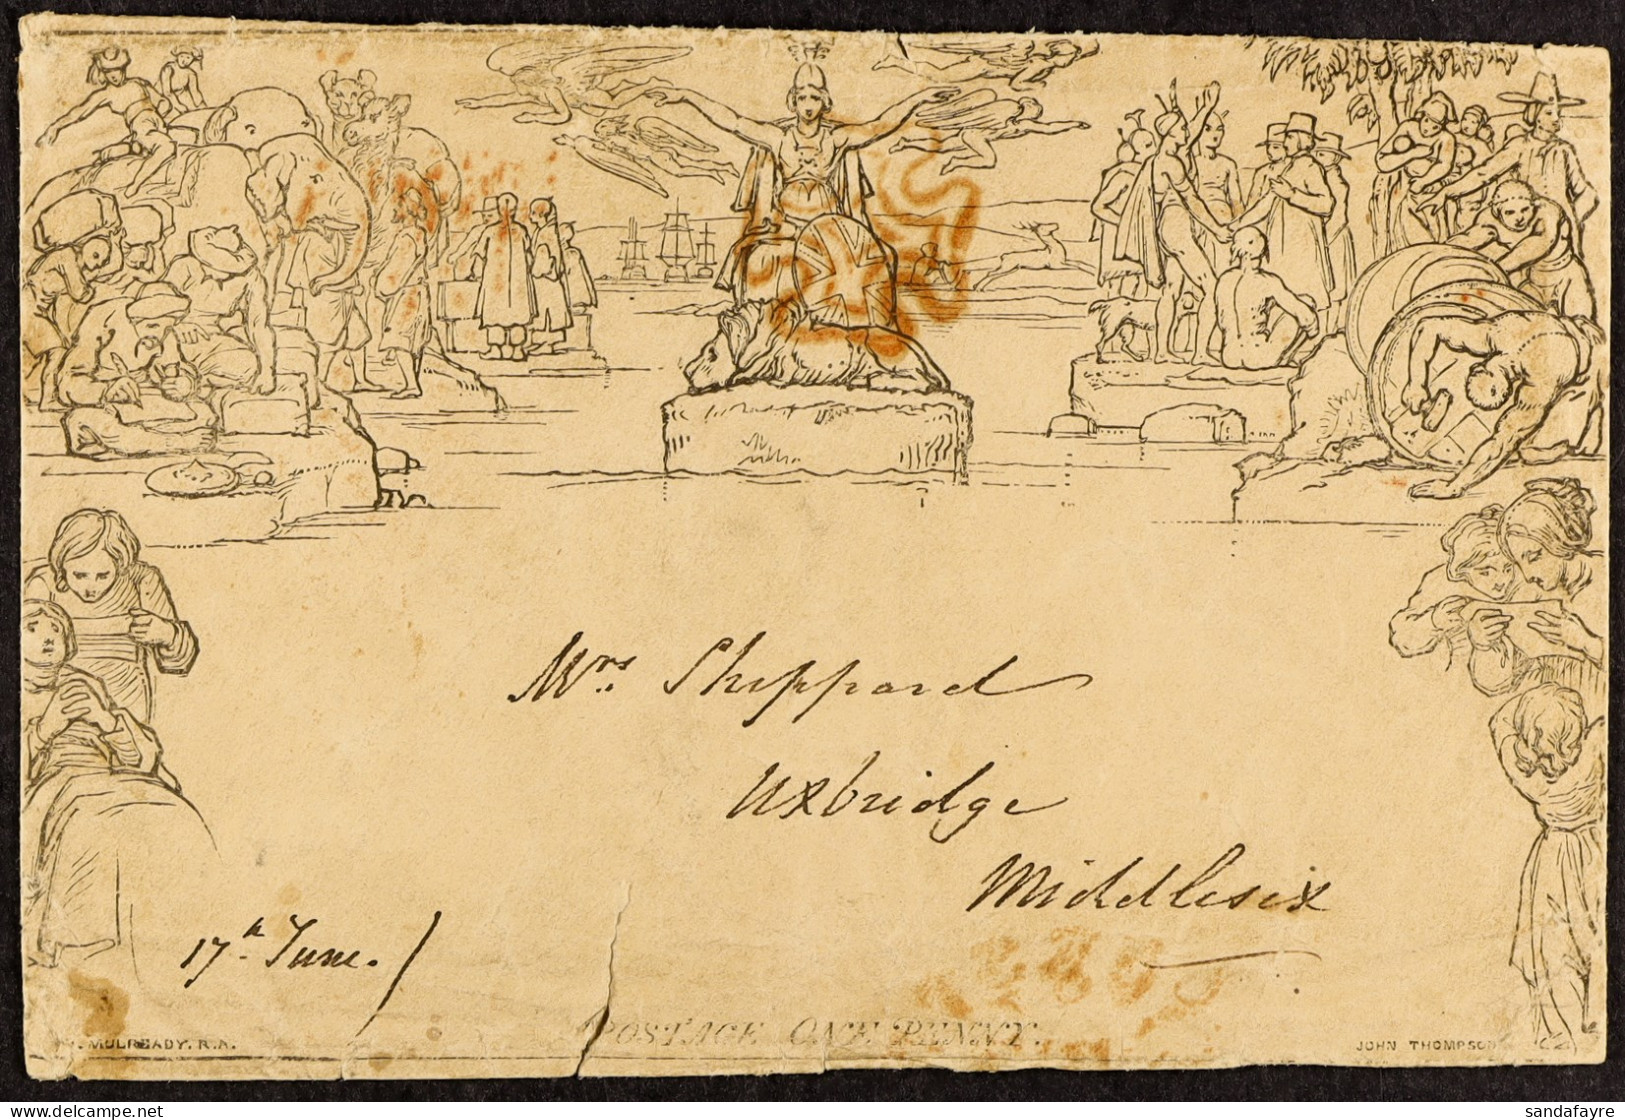 Mrs. Sheppard
Uxbridge
Middlesex
17th June. /
POSTAGE ONE PENNY.
MULREADY. R.A.
JOHN THOMPSON
sandafayre